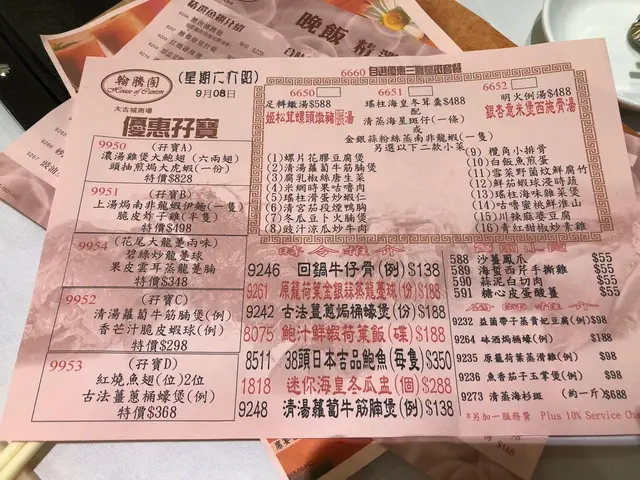 翰騰閣
House of Canton
太古城商場
(星期六九卽)
9月08日
優惠孖寶
9950 (孖寶A)
濃湯雞煲大鮑翅(六兩翅)
頭抽煎焗大虎蝦(一份)
特價$828
9951 (孖寶B)
上湯焗南非龍蝦伊麵(一隻)
脆皮炸子雞(半隻)
特價$498
9954 (花尾大龍躉兩味)
碧綠炒龍躉球
果皮雲耳蒸龍躉腩
特價$348
9952 (孖寶C)
清湯蘿蔔牛筋腩煲(例)
香芒汁脆皮蝦球(例)
特價$298
9953 (孖寶D)
紅燒魚翅(位)2位
古法薑蔥桶蠔煲(例)
特價$368
6660
6650
足料燉湯$588
姬松茸螺頭燉豬湯
6651
瑤柱海皇冬茸羹$488
6652
明火例湯$488
銀杏意米煲西施骨湯
配
清蒸海星斑仔(一條)
或
金銀蒜粉絲蒸南非龍蝦(一隻)
另選以下二款小菜
(1)螺片花膠豆腐煲
(2)清湯蘿蔔牛筋腩煲
(3)腐乳椒絲唐生菜
(4)米網時果咕嚕肉
(5)瑤柱滑蛋炒蝦仁
(6)清宮茄段煙鴨胸
(7)冬瓜豆卜火腩煲
(8)豉汁涼瓜炒牛肉
(9)欖角小排骨
(10)白飯魚煎蛋
(11)雪菜野菌炆鮮腐竹
(12)鮮茄蝦球浸時蔬
(13)瑤柱海味雜菜煲
(14)咕嚕蜜桃鮮淮山
(15)川辣麻婆豆腐
(16)青紅甜椒炒素雞
9246 回鍋牛仔骨(例)$138
9261 原籠荷葉金銀蒜蒸龍躉球(份)$188
9242 古法薑蔥焗桶蠔煲(例)$188
8075 鮑汁鮮蝦荷葉飯(碟)$188
8511 38頭日本吉品鮑魚(每隻)$350
1818 迷你海皇冬瓜盅(個)$288
9248 清湯蘿蔔牛筋腩煲(例)$138
588 沙薑鳳爪 $55
589 海蜇西芹手撕雞 $55
590 蒜泥白切肉 $55
591 糖心皮蛋酸薑 $55
9232 益菌帶子蒸貴妃豆腐(例)$98
9264 砵酒焗桶蠔(例) $188
9235 原籠荷葉蒸滑雞(例) $98
9236 魚香茄子玉掌煲(例) $98
9273 清蒸海杉斑 (約一斤)$688
*另加一服務費 Plus 10% Service Cha
晚飯精